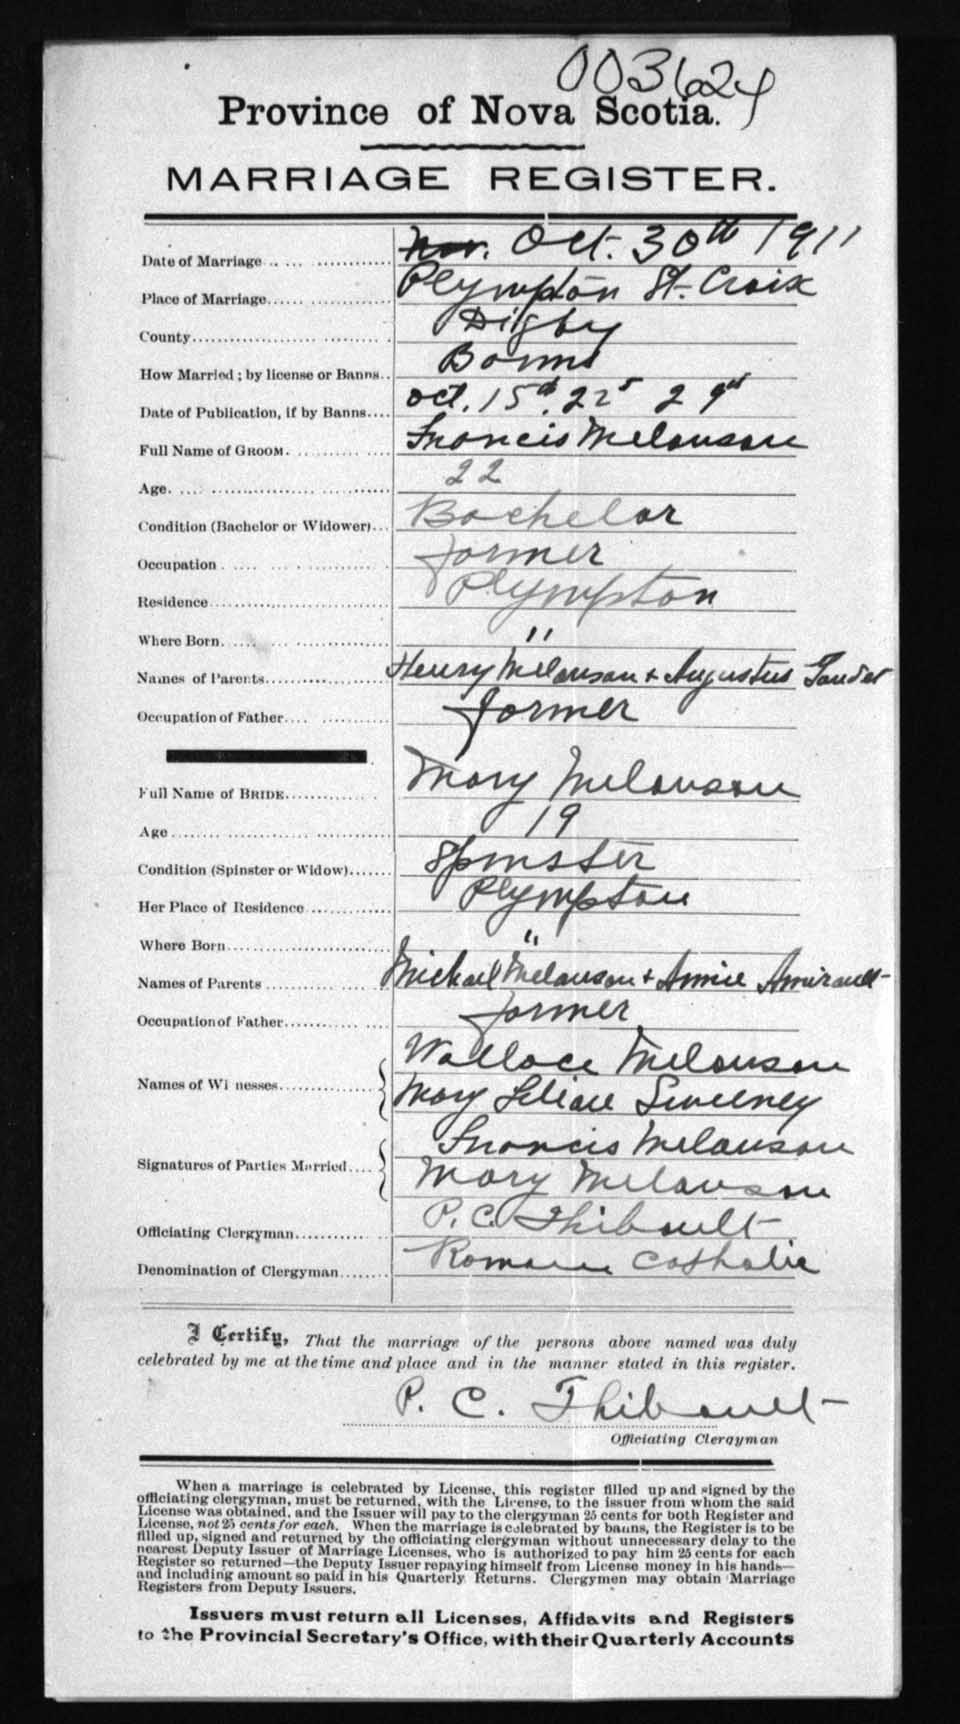 003624
Province of Nova Scotia.
MARRIAGE REGISTER.
Date of Marriage Nov. Oct. 30th 1911
Place of Marriage Plympton St. Croix
County Digby
How Married; by license or Banns.. Banns
Date of Publication, if by Banns.... Oct. 15th, 22d 29th
Full Name of GROOM. Francis Melanson
Age. 22
Condition (Bachelor or Widower)... Bachelor
Occupation farmer
Residence Plympton
Where Born. "
Names of Parents. Henry Melanson + Augustus
Occupation of Father farmer
Full Name of BRIDE Mary Melanson
Age 19
Condition (Spinster or Widow) Spinster
Her Place of Residence Plympton
Where Born "
Names of Parents Michael Melanson + Annie Amirault
Occupation of Father farmer
Names of Wi nesses Wallace Melanson
Mary Lilian Sweeney
Signatures of Parties Married Francis Melanson
Mary Melanson
Officiating Clergyman P. C. Thibault
Denomination of Clergyman Roman Catholic
I Certify, That the marriage of the persons above named was duly
celebrated by me at the time and place and in the manner stated in this register.
P. C. Thibault
Officiating Clergyman
When a marriage is celebrated by License, this register filled up and signed by the
officiating clergyman, must be returned, with the License, to the issuer from whom the said
License was obtained, and the Issuer will pay to the clergyman 25 cents for both Register and
License, not 25 cents for each. When the marriage is celebrated by banns, the Register is to be
filled up, signed and returned by the officiating clergyman without unnecessary delay to the
nearest Deputy Issuer of Marriage Licenses, who is authorized to pay him 25 cents for each
Register so returned—the Deputy Issuer repaying himself from License money in his hands—
and including amount so paid in his Quarterly Returns. Clergymen may obtain Marriage
Registers from Deputy Issuers.
Issuers must return all Licenses, Affidavits and Registers
to the Provincial Secretary's Office, with their Quarterly Accounts